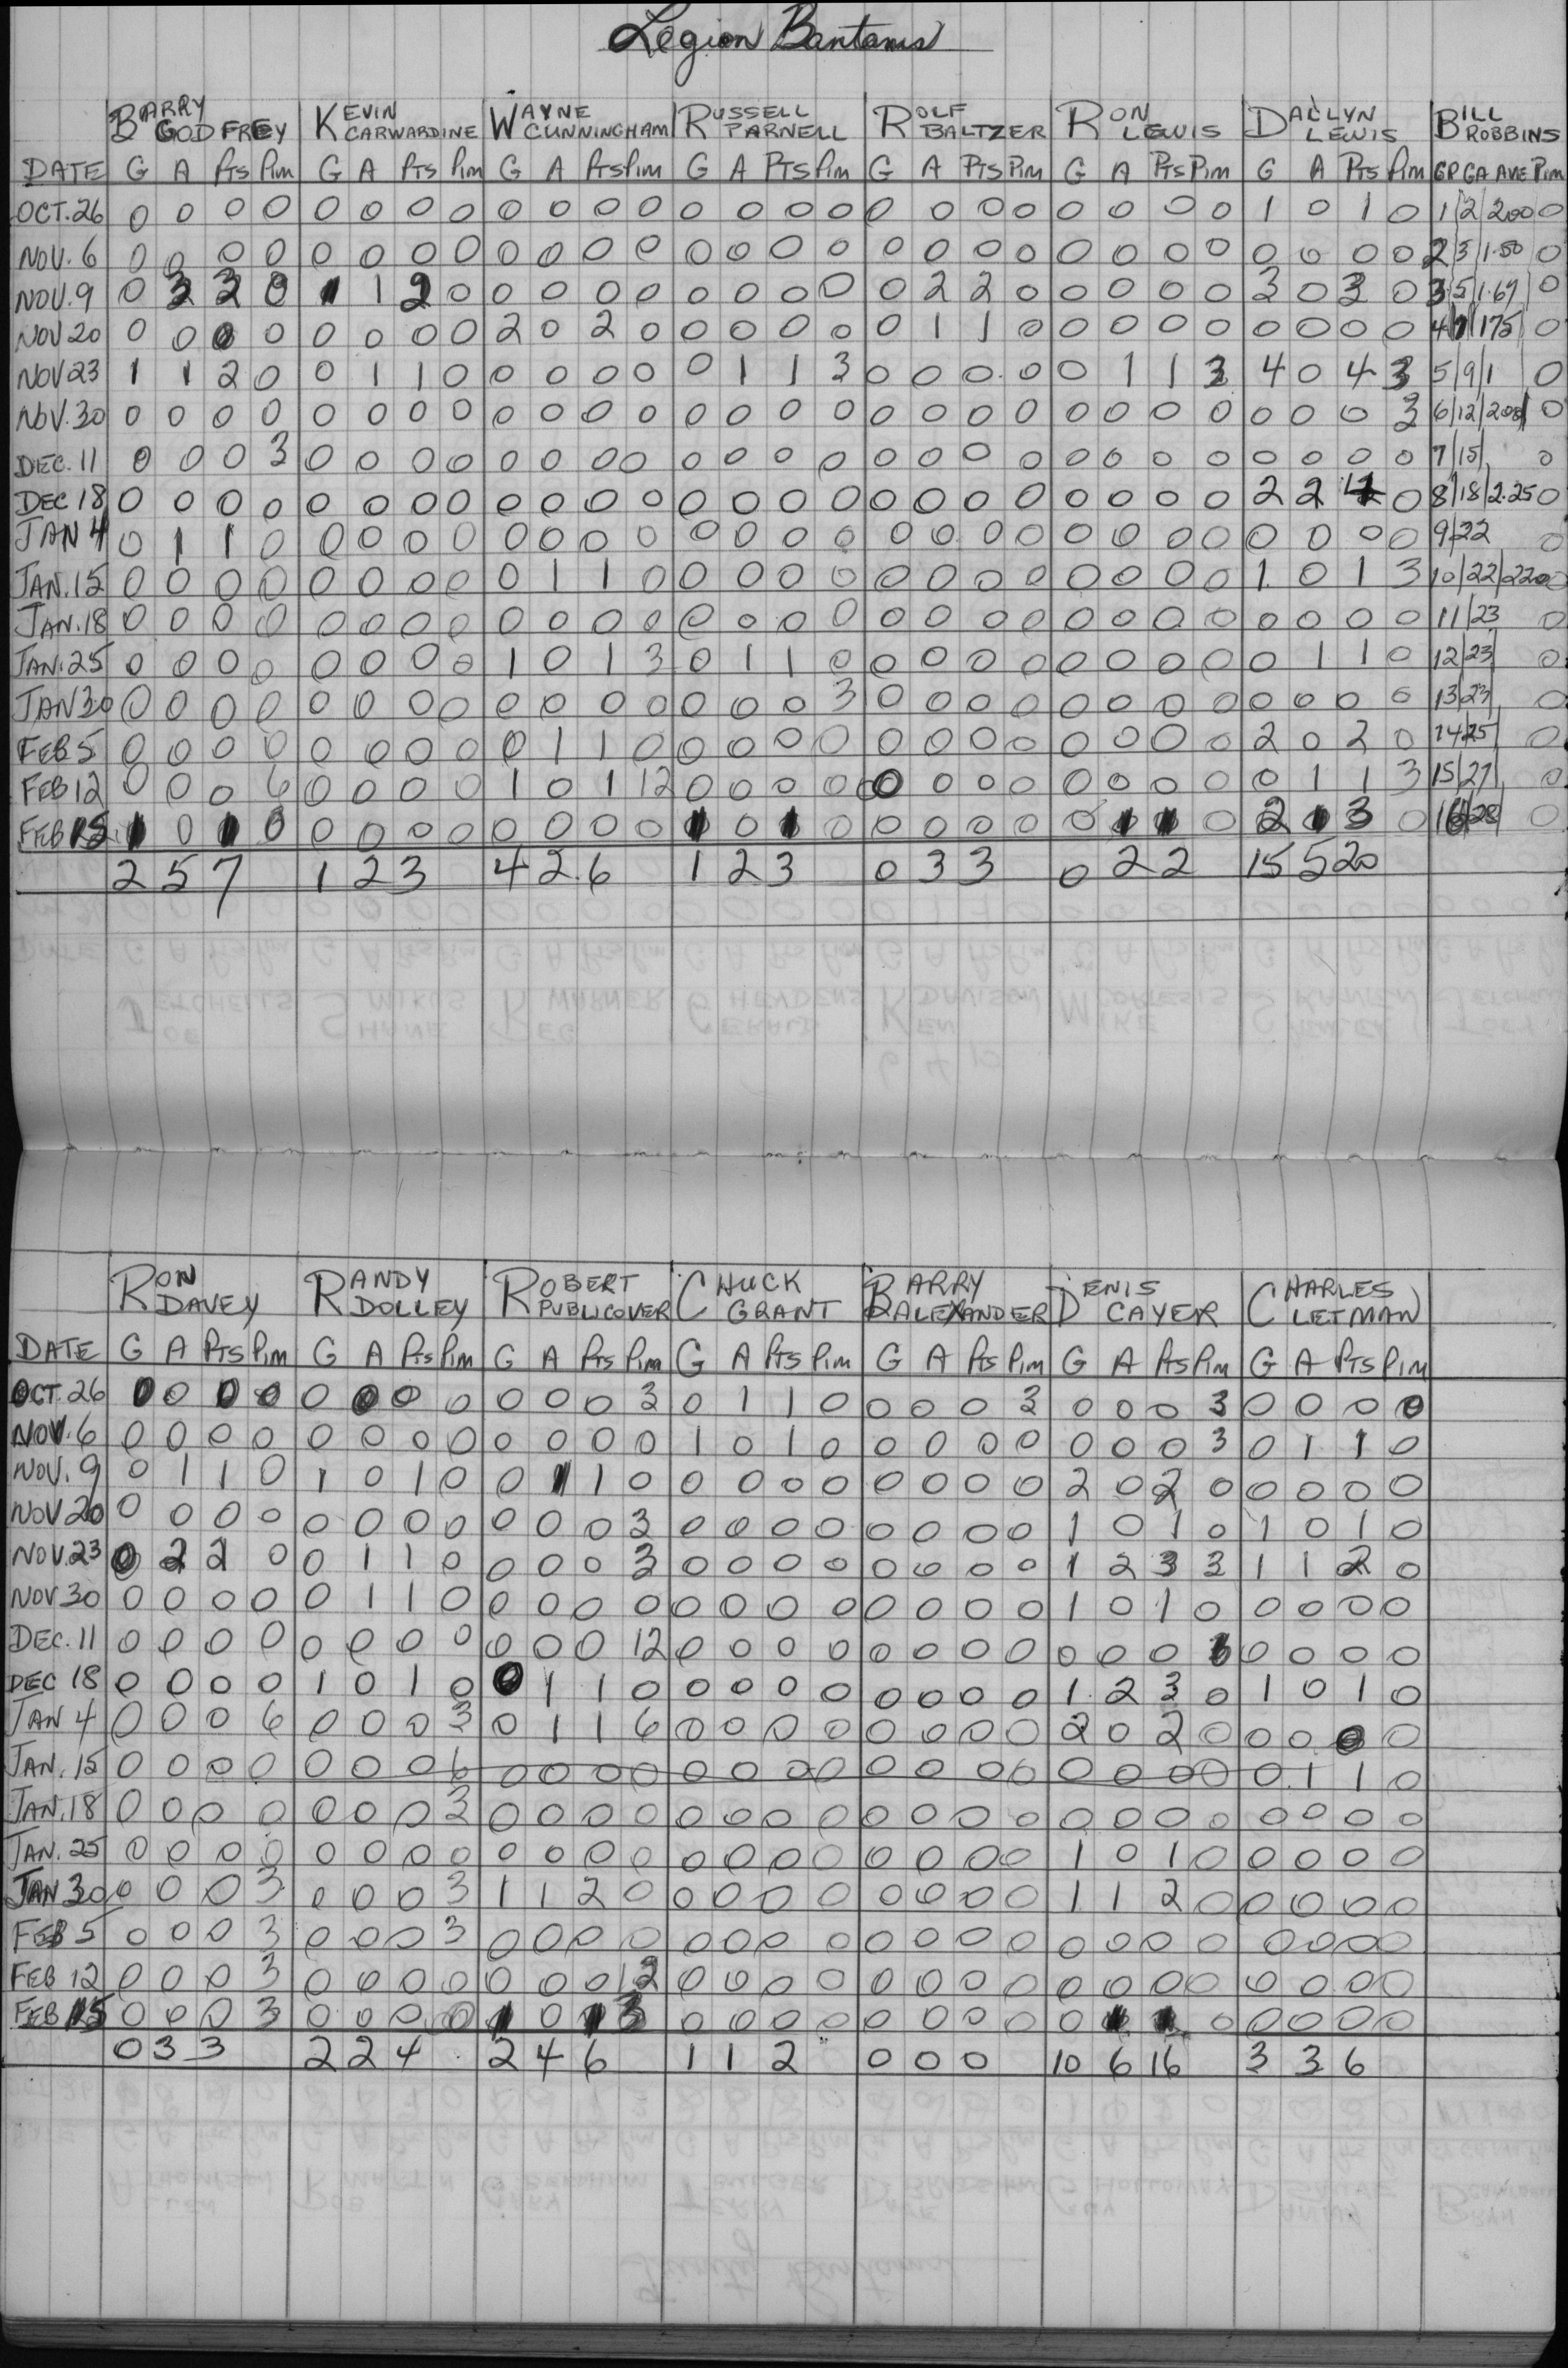 Legion Bantams
BARRY GODFREY KEVIN CARWARDINE WAYNE CUNNINGHAM RUSSELL PARNELL ROLF BALTZER RON LEWIS DALLYN LEWIS BILL ROBBINS
DATE G A Pts Pim G A Pts Pim G A Pts Pim G A Pts Pim G A Pts Pim G A Pts Pim G A Pts Pim GP GA AVE Pim
OCT. 26 0 0 0 0 0 0 0 0 0 0 0 0 0 0 0 0 0 0 0 0 0 0 0 0 1 0 1 0 1/2/2.00 0
NOV. 6 0 0 0 0 0 0 0 0 0 0 0 0 0 0 0 0 0 0 0 0 0 0 0 0 0 0 0 0 2/3/1.50 0
NOV. 9 0 3 3 0 1 1 2 0 0 0 0 0 0 0 0 0 0 2 2 0 0 0 0 0 3 0 3 0 3/5/1.67 0
NOV 20 0 0 0 0 0 0 0 0 2 0 2 0 0 0 0 0 0 1 1 0 0 0 0 0 0 0 0 0 4/7/175 0
NOV 23 1 1 2 0 0 1 1 0 0 0 0 0 0 1 1 3 0 0 0 0 0 1 1 3 4 0 4 3 5/9/1 0
NOV. 30 0 0 0 0 0 0 0 0 0 0 0 0 0 0 0 0 0 0 0 0 0 0 0 0 0 0 0 3 6/12/2.00 0
DEC. 11 0 0 0 3 0 0 0 0 0 0 0 0 0 0 0 0 0 0 0 0 0 0 0 0 0 0 0 0 7/15/ 0
DEC 18 0 0 0 0 0 0 0 0 0 0 0 0 0 0 0 0 0 0 0 0 0 0 0 0 2 2 4 0 8/18/2.25 0
JAN 4 0 1 1 0 0 0 0 0 0 0 0 0 0 0 0 0 0 0 0 0 0 0 0 0 0 0 0 0 9/22 0
JAN. 15 0 0 0 0 0 0 0 0 0 1 1 0 0 0 0 0 0 0 0 0 0 0 0 0 1 0 1 3 10/22/220 0
JAN. 18 0 0 0 0 0 0 0 0 0 0 0 0 0 0 0 0 0 0 0 0 0 0 0 0 0 0 0 0 11/23 0
JAN. 25 0 0 0 0 0 0 0 0 1 0 1 3 0 1 1 0 0 0 0 0 0 0 0 0 0 1 1 0 12/23/ 0
JAN 30 0 0 0 0 0 0 0 0 0 0 0 0 0 0 0 3 0 0 0 0 0 0 0 0 0 0 0 0 13/23/ 0
FEB 5 0 0 0 0 0 0 0 0 0 1 1 0 0 0 0 0 0 0 0 0 0 0 0 0 2 0 2 0 14/25/ 0
FEB 12 0 0 0 6 0 0 0 0 1 0 1 12 0 0 0 0 0 0 0 0 0 0 0 0 0 1 1 3 15/27/ 0
FEB 15 1 0 1 0 0 0 0 0 0 0 0 0 1 0 1 0 0 0 0 0 0 1 1 0 2 1 3 0 16/28/ 0
2 5 7 1 2 3 4 2 6 1 2 3 0 3 3 0 2 2 15 5 20
RON DAVEY RANDY DOLLEY ROBERT PUBLICOVER CHUCK GRANT BARRY ALEXANDER DENIS CAYER CHARLES LETMAN
DATE G A Pts Pim G A Pts Pim G A Pts Pim G A Pts Pim G A Pts Pim G A Pts Pim G A Pts Pim
OCT. 26 0 0 0 0 0 0 0 0 0 0 0 3 0 1 1 0 0 0 0 3 0 0 0 3 0 0 0 0
NOV. 6 0 0 0 0 0 0 0 0 0 0 0 0 1 0 1 0 0 0 0 0 0 0 0 3 0 1 1 0
NOV. 9 0 1 1 0 1 0 1 0 0 1 1 0 0 0 0 0 0 0 0 0 2 0 2 0 0 0 0 0
NOV 20 0 0 0 0 0 0 0 0 0 0 0 3 0 0 0 0 0 0 0 0 1 0 1 0 1 0 1 0
NOV. 23 0 2 2 0 0 1 1 0 0 0 0 3 0 0 0 0 0 0 0 0 1 2 3 3 1 1 2 0
NOV 30 0 0 0 0 0 1 1 0 0 0 0 0 0 0 0 0 0 0 0 0 1 0 1 0 0 0 0 0
DEC. 11 0 0 0 0 0 0 0 0 0 0 0 12 0 0 0 0 0 0 0 0 0 0 0 3 0 0 0 0
DEC 18 0 0 0 0 1 0 1 0 0 1 1 0 0 0 0 0 0 0 0 0 1 2 3 0 1 0 1 0
JAN 4 0 0 0 6 0 0 0 3 0 1 1 6 0 0 0 0 0 0 0 0 2 0 2 0 0 0 0 0
JAN. 15 0 0 0 0 0 0 0 6 0 0 0 0 0 0 0 0 0 0 0 0 0 0 0 0 0 1 1 0
JAN. 18 0 0 0 0 0 0 0 3 0 0 0 0 0 0 0 0 0 0 0 0 0 0 0 0 0 0 0 0
JAN. 25 0 0 0 0 0 0 0 0 0 0 0 0 0 0 0 0 0 0 0 0 1 0 1 0 0 0 0 0
JAN 30 0 0 0 3 0 0 0 3 1 1 2 0 0 0 0 0 0 0 0 0 1 1 2 0 0 0 0 0
FEB 5 0 0 0 3 0 0 0 3 0 0 0 0 0 0 0 0 0 0 0 0 0 0 0 0 0 0 0 0
FEB 12 0 0 0 3 0 0 0 0 0 0 0 12 0 0 0 0 0 0 0 0 0 0 0 0 0 0 0 0
FEB 15 0 0 0 3 0 0 0 0 1 0 1 3 0 0 0 0 0 0 0 0 0 1 1 0 0 0 0 0
0 3 3 2 2 4 2 4 6 1 1 2 0 0 0 10 6 16 3 3 6